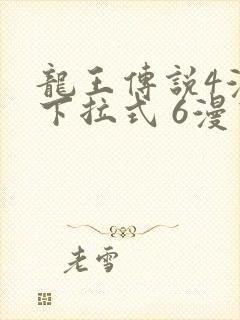 龍王傳説4漫
下拉式 6漫
老雪